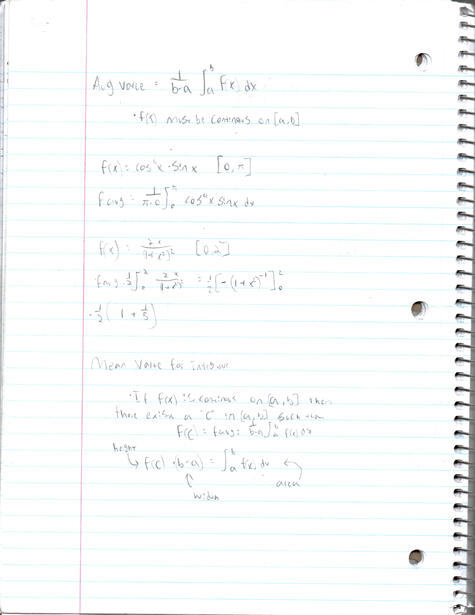 Avg value = 1/b-a ∫_a^b f(x) dx
• f(x) must be continous on [a,b]
f(x) = cos⁴x · sin x [0, π]
F avg = 1/π-0 ∫_0^π cos⁴ x sin x dx
f(x) = 2x/(1+x²)² [0,2]
favg = 1/2 ∫_0^2 2x/(1+x²)² = 1/2 [-(1+x²)⁻¹]_0^2
1/2 ( 1 + 1/5 )
Mean Value for
• If f(x) is continous on [a,b] then
there exists a "C" in [a,b] such that
F(c) = favg = 1/b-a ∫_a^b f(x) dx
height
f(c) · (b-a) = ∫_a^b f(x) dx
area
width